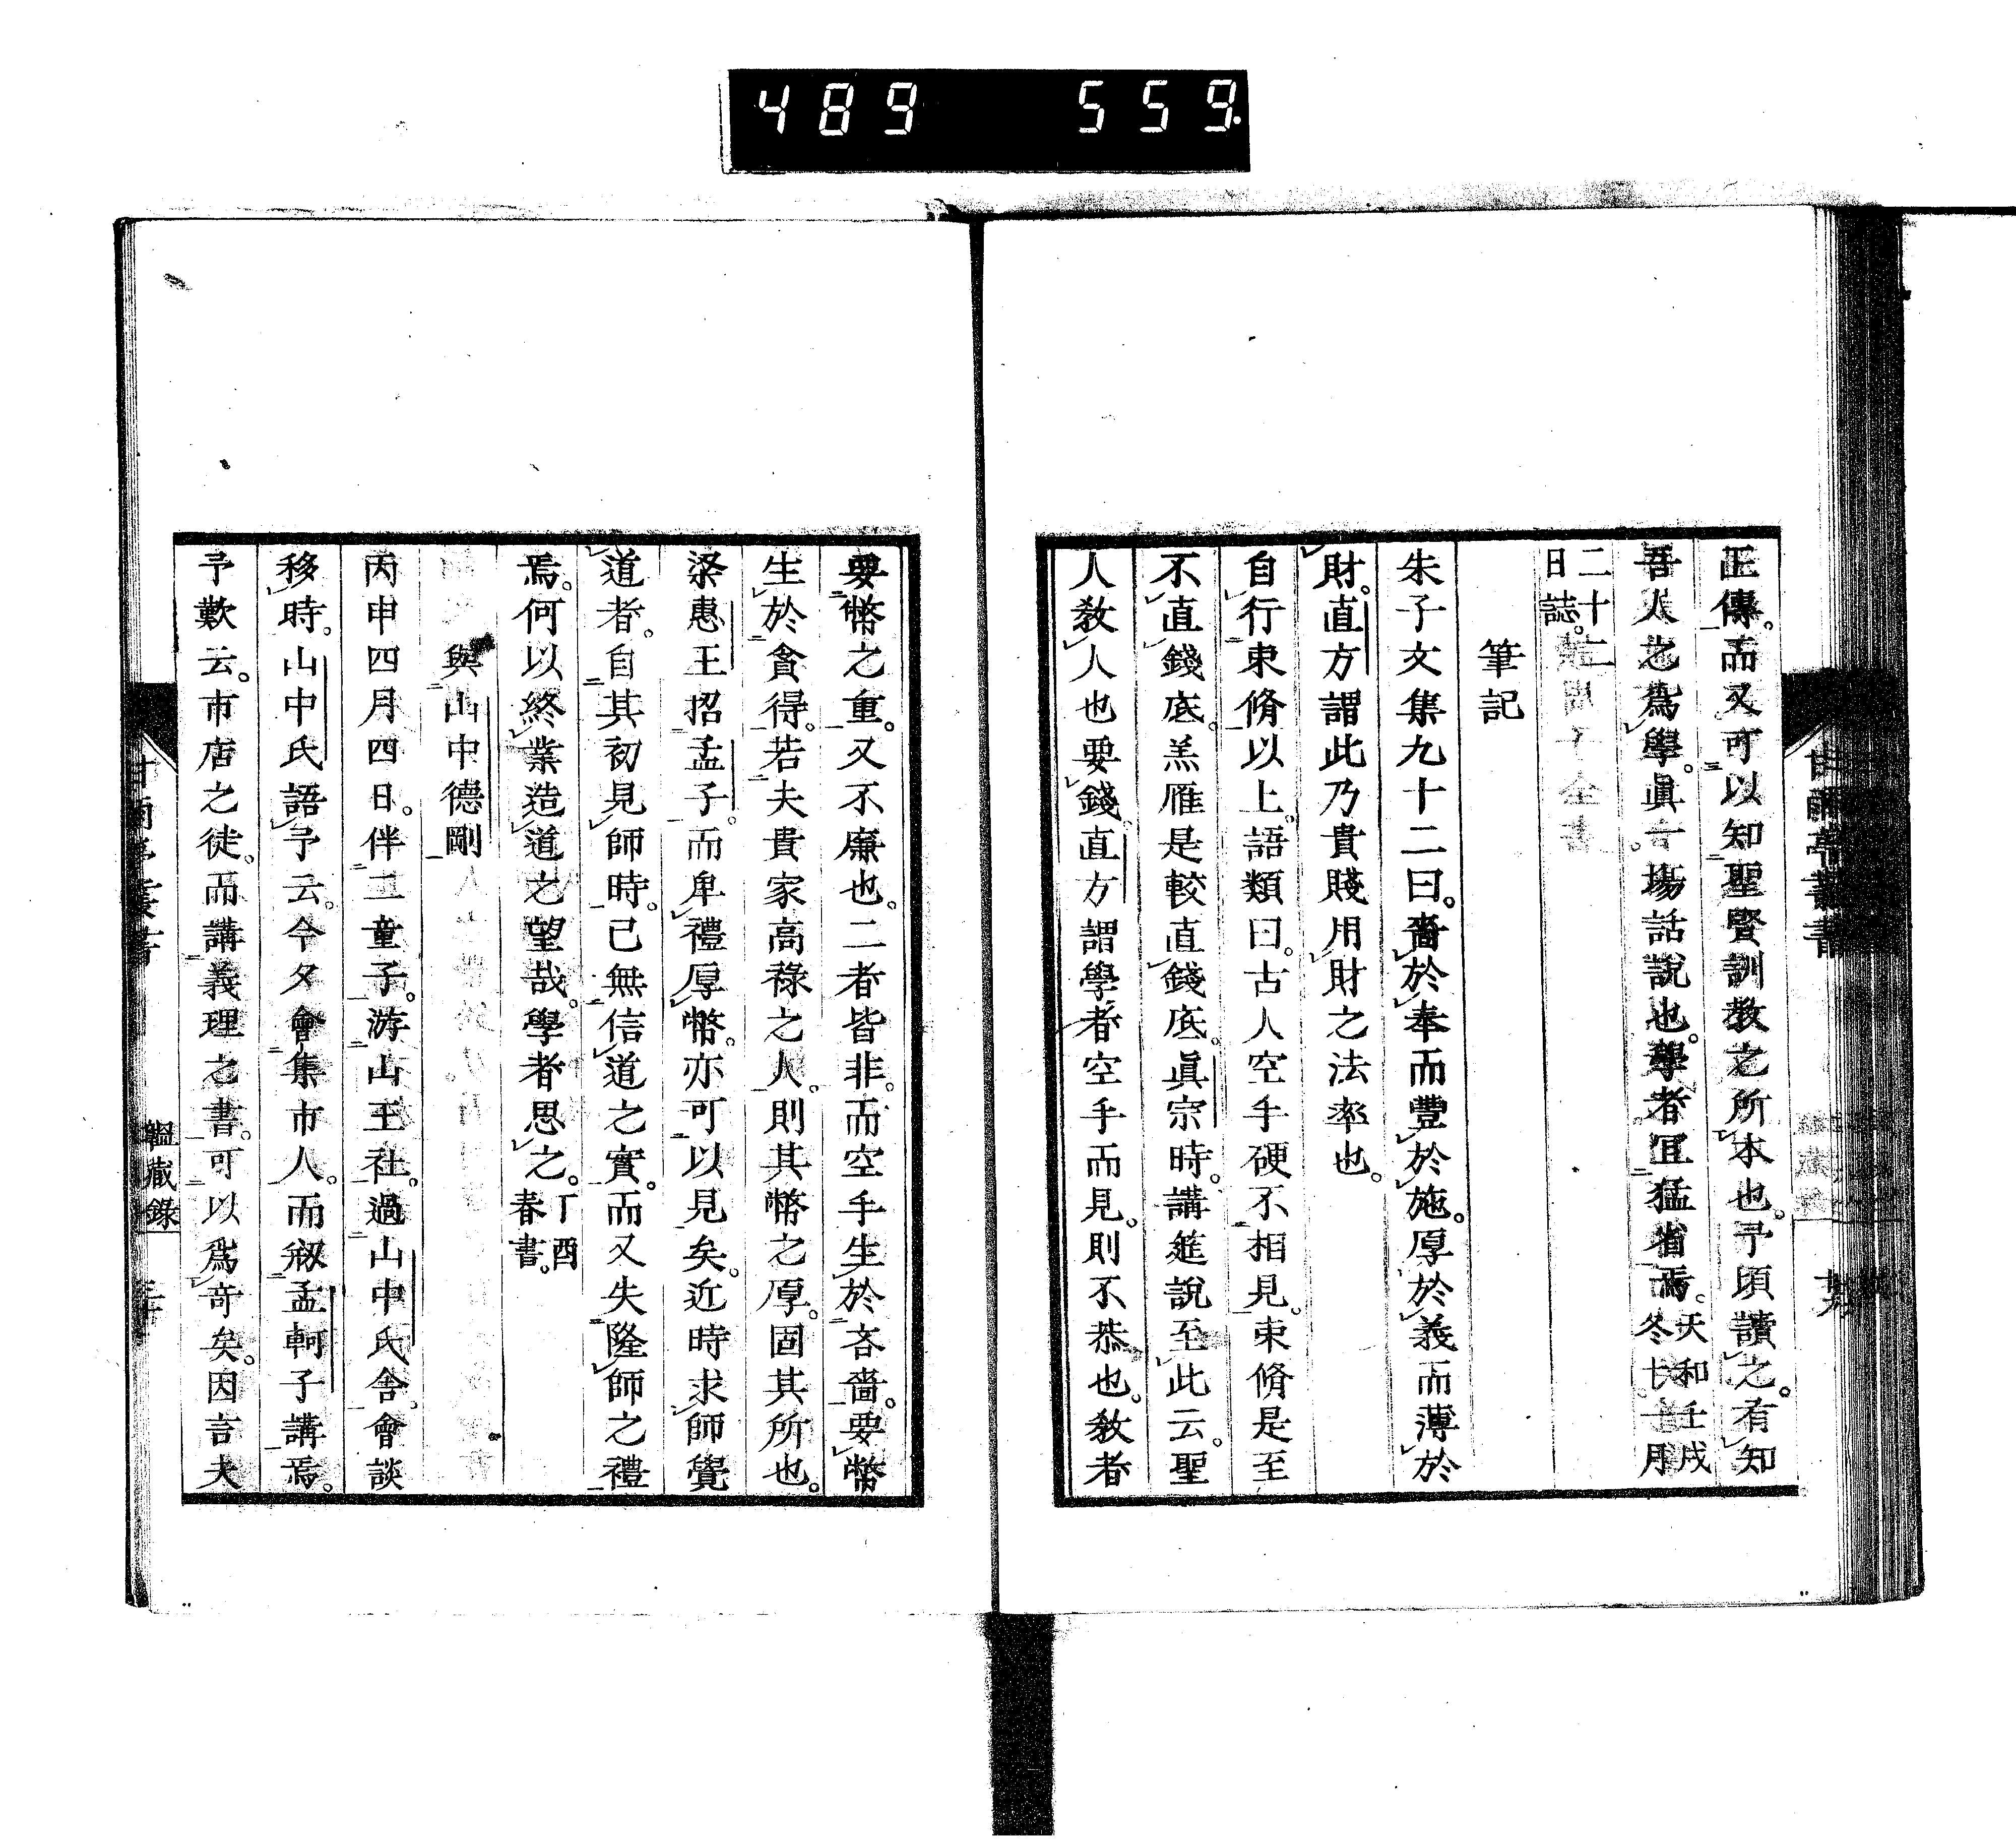 489 559.
正傳。而又可以知聖賢訓教之所本也。予頃讀之。有知
吾人之爲學。眞一場話說也。學者宜猛省焉。天和壬戌冬十一月
二十二日誌。
筆記
朱子文集九十二曰。嗇於奉而豐於施。厚於義而薄於
財。直方謂此乃貴賤用財之法率也。
自行束脩以上。語類曰。古人空手硬不相見。束脩是至
不直錢底。羔雁是較直錢底。眞宗時。講筵說至此云。聖
人教人也要錢。直方謂學者空手而見。則不恭也。教者
要幣之重。又不廉也。二者皆非。而空手生於吝嗇。要幣
生於貪得。若夫貴家高祿之人。則其幣之厚。固其所也。
梁惠王招孟子。而卑禮厚幣。亦可以見矣。近時求師覺
道者。自其初見師時。已無信道之實。而又失隆師之禮
焉。何以終業造道之望哉。學者思之。丁酉春書。
與山中德剛
丙申四月四日。伴二童子。游山王社。過山中氏舍。會談
移時。山中氏語予云。今夕會集市人。而初孟軻子講焉。
予歎云。市店之徒。而講義理之書。可以爲奇矣。因言夫
韞藏錄